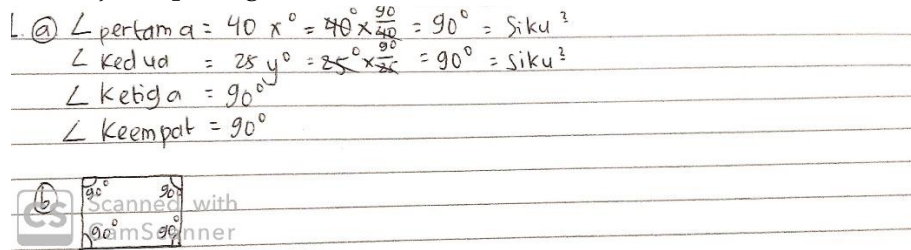 1. ⓐ ∠ pertama = 40 x° = 40° × 90/40 = 90° = Siku²
∠ Kedua = 25 y° = 25° × 90/25 = 90° = Siku²
∠ Ketiga = 90°
∠ Keempat = 90°
ⓑ 90° 90°
CS Scanned with
90° 90°
CamScanner